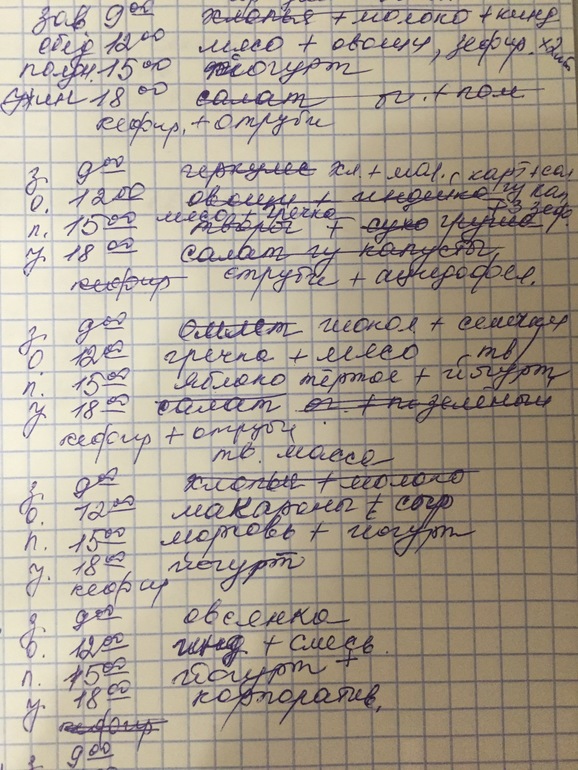 зав 9 00 хлопья + молоко + кинд
обед 12 00 мясо + овощи, зефир. x2
полдн. 15 00 йогурт
ужин 18 00 салат ог. + пом
кефир. + отруби
з. 9 00 геркулес хл. + мол. с карт + сал
о. 12 00 овощи + индейка гу кап
мясо + гречка + 3 зеф.
п. 15 00 творог + сухо груша
у 18 00 салат гу капусты
кефир отруби + ацидофил.
з. 9 00 омлет шокол + семечки
о 12 00 гречка + мясо тв
п. 15 00 яблоко тёртое + йогурт
у 18 00 салат ог. + по зелёный
кефир + отруби
тв. масса
з. 9 00 хлопья + молоко
о. 12 00 макароны + сыр
п. 15 00 морковь + йогурт
у. 18 00 йогурт
кефир
з 9 00 овсянка
о. 12 00 инд + смесь.
п. 15 00 йогурт +
у. 18 00 корпоратив,
кефир
з 9 00